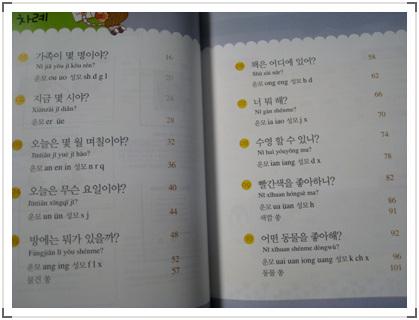 차례
가족이 몇 명이야? 16
Nǐ jiā yǒu jǐ kǒu rén?
운모 ou uo 성모 sh d g l 20
지금 몇 시야? 24
Xiànzài jǐ diǎn?
운모 er üe 28
오늘은 몇 월 며칠이야? 32
Jīntiān jǐ yuè jǐ hào?
운모 an en in 성모 n r q 36
오늘은 무슨 요일이야? 40
Jīntiān xīngqī jǐ?
운모 un ün 성모 s j 44
방에는 뭐가 있을까? 48
Fángjiān li yǒu shénme?
운모 ang ing 성모 f l x 52
물건 퐁 57
책은 어디에 있어? 58
Shū zài nǎr?
운모 ong eng 성모 b d 62
너 뭐 해? 66
Nǐ gàn shénme?
운모 ia iao 성모 j x 70
수영 할 수 있니? 74
Nǐ huì yóuyǒng ma?
운모 ian iang 성모 d x 78
빨간색을 좋아하니? 82
Nǐ xǐhuan hóngsè ma?
운모 ua üan 성모 h 86
색깔 퐁 91
어떤 동물을 좋아해? 92
Nǐ xǐhuan shénme dòngwù?
운모 uai uan iong uang 성모 k ch x 96
동물 퐁 101